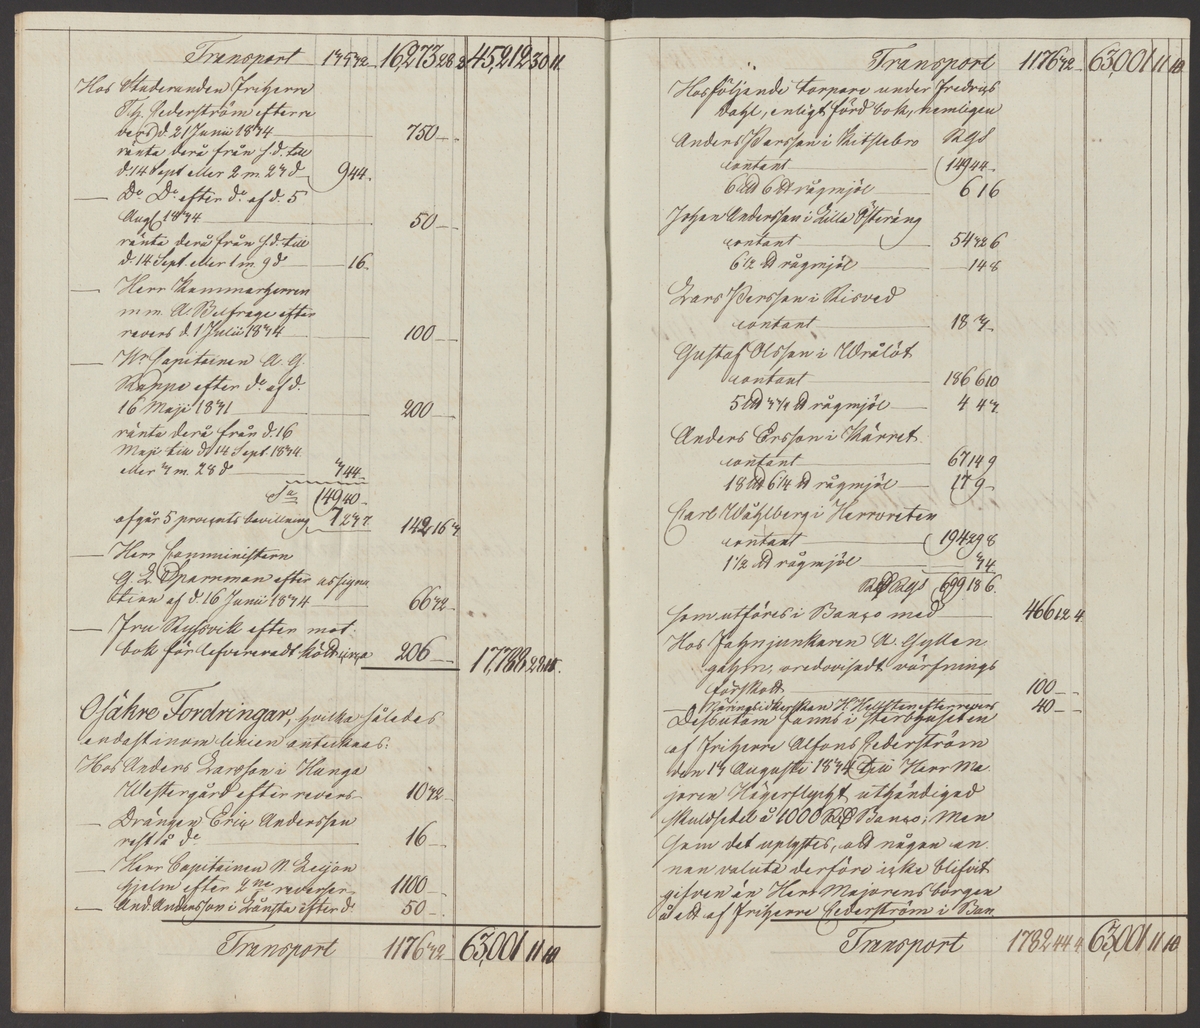 Transport 16,273 28 2 45,212 30 11.
Hos Studeranden Friherre
Th: Cederström efter re
vers d. 21 Junii 1834 750
ränta derå från s.d. till
d. 14 Sept. eller 2 m. 23 d 9 44.
— Do Do efter do af d. 5
Aug. 1834 50
ränta derå från s.d. till
d. 14 Sept. eller 1 m. 9 d 16.
— Herr Kammarherren
m.m. A Belfrage efter
revers d. 1 Julii 1834 100
— Hr Capitainen A. G.
efter do af d.
16 Maji 1831 200
ränta derå från d. 16
Maji till d. 14 Sept. 1834
eller 3 m. 28 d 3 44.
Sa 149 40
afgår 5 procents bevillning 7 23 7 142 16 3
— Herr Comministern
G. L. Sparrman efter assigna
tion af d. 16 Junii 1834 66 32
— Fru Rylsvik efter mot:
bok för lefvereradt 206 17,788
Osäkre Fordringar, hvilka således
endast inom linien antecknas:
Hos Anders Larsson i Hunga
Westergård efter revers 10 32
— Drängen Eric Andersson
rest å do 16
— Herr Capitainen N. Leijon
hjelm efter 2ne reverser 1100
— And. Andersson i Lånsta efter do 50
Transport 1176 32 63,001 11 10
Transport 1176 32 63,001 11 10
Hos följande torpare under Fredriks
dahl, enligt förd bok, nemligen
Anders Persson i Kitslebro Rgs
contant 149 44
rågmjöl 6 16
Johan Andersson i Lilla Österäng
contant 54 32 6
6 1/2 ℔ rågmjöl 14 8
Lars Persson i Risved
contant 18 3
Gustaf Olsson i Wrålöt
contant 186 6 10
rågmjöl 4 43
Anders Ersson i Kärret
contant 67 14 9
rågmjöl 17 9
Carl Wåhlberg i Herrvreten
contant 194 29 8
1 1/2 ℔ rågmjöl 34
Rd Rgs 699 18 6.
som utföres i Banco med 466 12 4
Hos Fahnjunkaren A. Gyllen
oredovisadt värfnings
förskott 100
— Näringsidkerskan H. Hellsten efter revers 40
Dessutom fanns i sterbhuset en
af Friherre Alfons Cederström
den 13 Augusti 1834 till Herr Ma
joren Hägerflycht utgifvened
skuldsedel å 1000 Rd Banco; Men
som det uplystes, att någon an
nan valuta derföre icke blifvit
gifven än Herr Majorens borgen
å ett af Friherre Cederström i Ban
Transport 1782 44 4 63,001 11 10